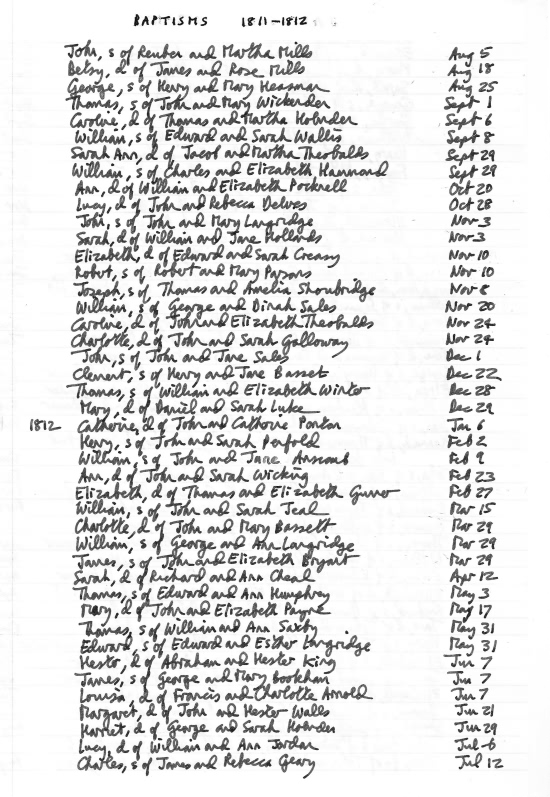 BAPTISMS 1811-1812
John, s of Reuben and Martha Mills Aug 5
Betsy, d of James and Rose Mills Aug 18
George, s of Henry and Mary Heasman Aug 25
Thomas, s of John and Mary Wickenden Sept 1
Caroline, d of Thomas and Martha Hobnden Sept 6
William, s of Edward and Sarah Wallis Sept 8
Sarah Ann, d of Jacob and Martha Theobalds Sept 29
William, s of Charles and Elizabeth Hammond Sept 29
Ann, d of William and Elizabeth Pocknell Oct 20
Lucy, d of John and Rebecca Delves Oct 28
John, s of John and Mary Langridge Nov 3
Sarah, d of William and Jane Hollands Nov 3
Elizabeth, d of Edward and Sarah Creasy Nov 10
Robert, s of Robert and Mary Parsons Nov 10
Joseph, s of Thomas and Amelia Shoubridge Nov 8
William, s of George and Dinah Sales Nov 20
Caroline, d of John and Elizabeth Theobalds Nov 24
Charlotte, d of John and Sarah Galloway Nov 24
John, s of John and Jane Sales Dec 1
Clement, s of Henry and Jane Basset Dec 22
Thomas, s of William and Elizabeth Winter Dec 28
Mary, d of Daniel and Sarah Luke Dec 29
1812 Catherine, d of John and Catherine Ponton Jan 6
Henry, s of John and Sarah Penfold Feb 2
William, s of John and Jane Anscomb Feb 9
Ann, d of John and Sarah Wicking Feb 23
Elizabeth, d of Thomas and Elizabeth Gunner Feb 27
William, s of John and Sarah Teal Mar 15
Charlotte, d of John and Mary Bassett Mar 29
William, s of George and Ann Langridge Mar 29
James, s of John and Elizabeth Bryant Mar 29
Sarah, d of Richard and Ann Cheal Apr 12
Thomas, s of Edward and Ann Humphrey May 3
Mary, d of John and Elizabeth Payne May 17
Thomas, s of William and Ann Saxby May 31
Edward, s of Edward and Esther Langridge May 31
Hester, d of Abraham and Hester King Jun 7
James, s of George and Mary Bookham Jun 7
Louisa, d of Francis and Charlotte Arnold Jun 7
Margaret, d of John and Hester Walls Jun 21
Harriet, d of George and Sarah Hobnden Jun 29
Lucy, d of William and Ann Jordan Jul 6
Charles, s of James and Rebecca Geary Jul 12